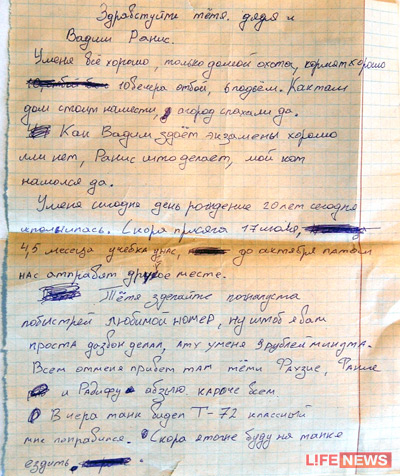 Здравствуйте тётя, дядя и
Вадим Ранис.
Уменя всё хорошо, только домой охоты, кормят хорошо
10 вечера отбой, 6 подъём. Как там
дом стоит на мести, агород спахали да.
Как Вадим здаёт экзамены хорошо
или нет, Ранис што делает, мой кот
нашолся да.
Уменя сегодня день рождение 20 лет сегодня
исполнилась. Скора присяга 17 июля,
4,5 месеца учебка у нас, до октября патом
нас атправят другое месте.
Тётя зделайте пожалуста
побыстрей любимой номер, ну штоб я вам
проста дозвон делал, ату уменя 9 рублей минута.
Всем отменя привет там тёти Фаузие, Фание
и Радифу абзыю кароче всем.
Вчера танк видел Т-72 классный
мне понравился. Скора ятоже буду на танке
ездить.
LIFENEWS